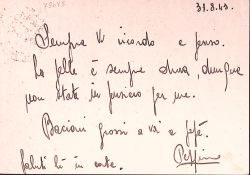 31.8.43.
Sempre Vi ricordo e penso.
La pelle è sempre dura, dunque
non state in pensiero per me.
Bacioni grossi a voi e
Saluti
Peppino